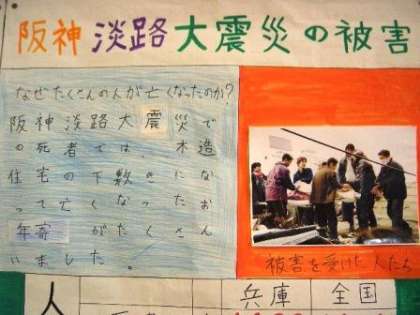 阪神淡路大震災の被害
なぜたくさんの人が亡くなったのか?
阪神淡路大震災で
の死者では、木造
住宅の下敷きにな
って亡くなったお
年寄がたくさん
いました。
被害を受けた人たち
人
兵庫 全国